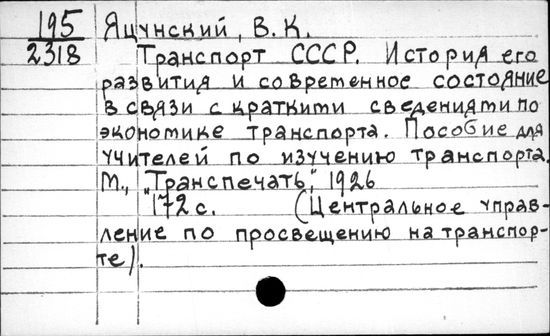 195
2318
Яцунский, В. К.
Транспорт СССР. История его
развития и современное состояние
в связи с краткими сведениями по
экономике транспорта. Пособие для
учителей по изучению транспорта.
М., "Транспечать", 1926
172 с. (Центральное управ-
ление по просвещению на транспор-
те).